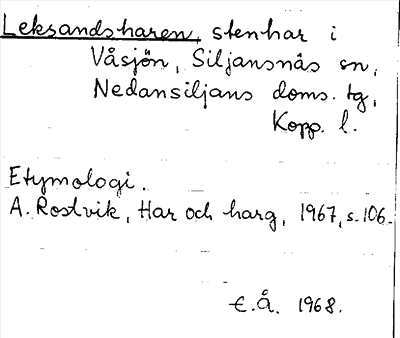 Leksandsharen, stenhar i
Våsjön, Siljansnäs sn,
Nedansiljans doms. tg,
Kopp. l.
Etymologi.
A. Rostvik, Har och harg, 1967, s. 106.
E.Å. 1968.